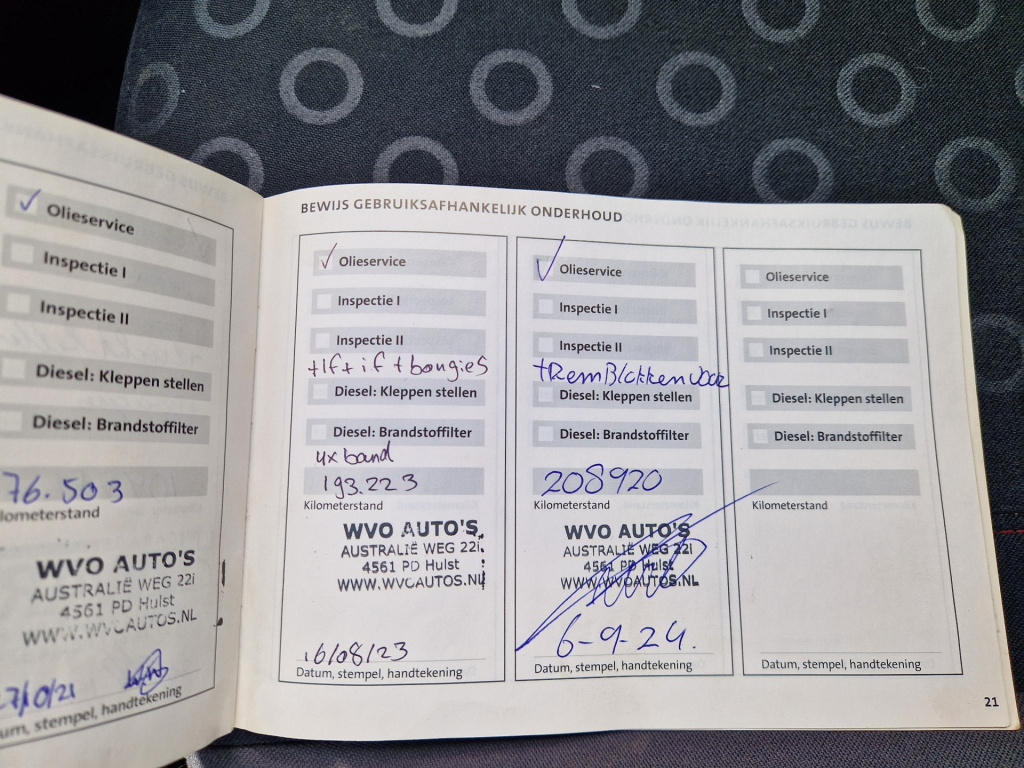 Olieservice
Inspectie I
Inspectie II
Diesel: Kleppen stellen
Diesel: Brandstoffilter
76.503
lometerstand
WVO AUTO'S
AUSTRALIË WEG 22i
4561 PD Hulst
WWW.WVOAUTOS.NL
um, stempel, handtekening
BEWIJS GEBRUIKSAFHANKELIJK ONDERHOUD
Olieservice
Inspectie I
Inspectie II
+lf+if+bougies
Diesel: Kleppen stellen
Diesel: Brandstoffilter
4x band
193.223
Kilometerstand
WVO AUTO'S
AUSTRALIË WEG 22i
4561 PD Hulst
WWW.WVOAUTOS.NL
16/08/23
Datum, stempel, handtekening
Olieservice
Inspectie I
Inspectie II
+RemBlokken voor
Diesel: Kleppen stellen
Diesel: Brandstoffilter
208920
Kilometerstand
WVO AUTO'S
AUSTRALIË WEG 22i
4561 PD Hulst
WWW.WVOAUTOS.NL
6-9-24.
Datum, stempel, handtekening
Olieservice
Inspectie I
Inspectie II
Diesel: Kleppen stellen
Diesel: Brandstoffilter
Kilometerstand
Datum, stempel, handtekening
21